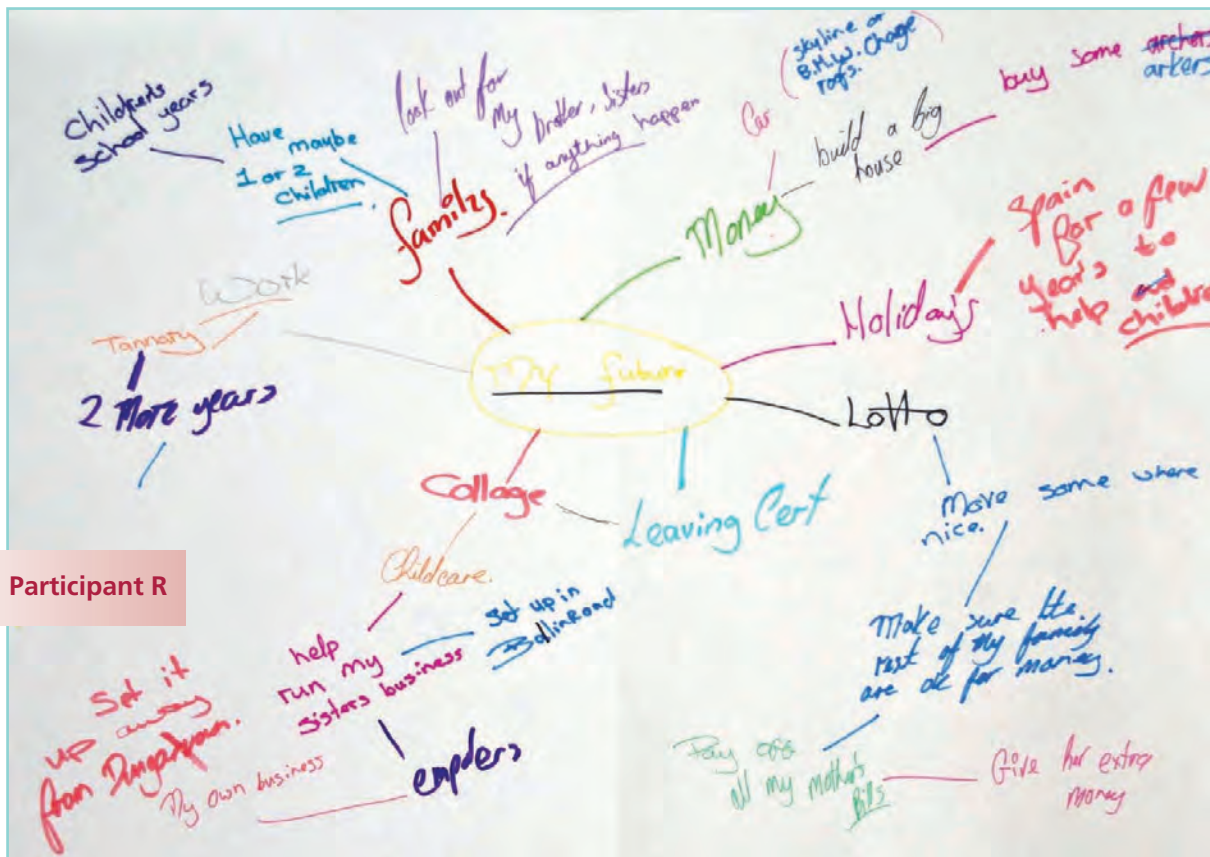 My future
family.
look out for
My brother, sisters
if anything happen
Have maybe
1 or 2
children.
school years
Money
Car
(skyline or
B.M.W. Chage
roofs.
build a big
house
buy some
arkers
Holiday's
Spain
for a few
year's to
help
children
Lotto
Move some where
nice.
Make sure the
rest of My family
are ok for money.
Pay off
all my mothers
Bills
Give her extra
money
Leaving Cert
Collage
Childcare.
help
run my
sisters business
set up in
empders
My own business
Set it
up away
from
Work
Tannary
2 More years
Participant R